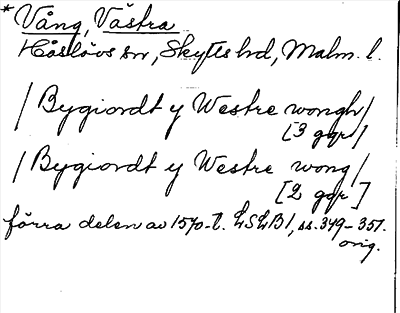 * Vång, Västra
Håslövs sn, Skytts hd, Malm. l.
/ Bygiordt y Westre wongh /
[3 ggr]
/ Bygiordt y Westre wong /
[2 ggr]
förra delen av 1570-t. LSLB 1, ss. 349-351.
orig.